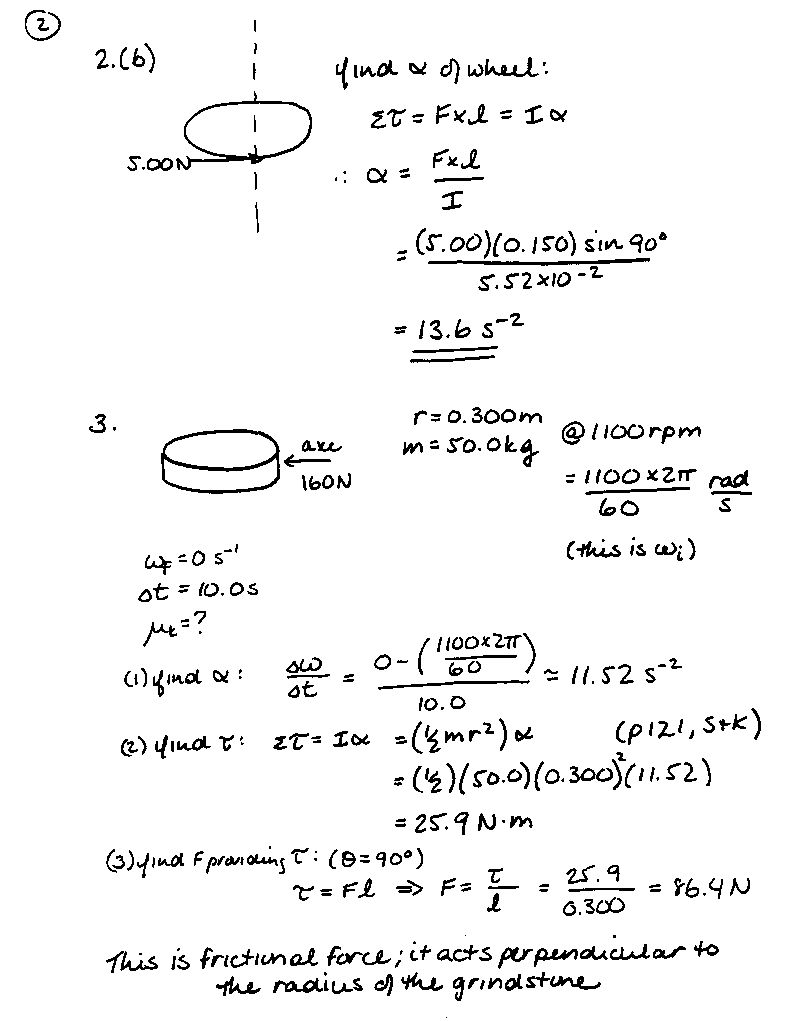 2
2.(b)
find α of wheel:
Στ = F×l = Iα
5.00N
∴ α = F×l / I
= (5.00)(0.150) sin 90° / 5.52×10⁻²
= 13.6 s⁻²
3.
axe
160N
r=0.300m
m=50.0kg
@ 1100rpm
= 1100×2π / 60 rad / s
(this is ωi)
ωf = 0 s⁻¹
Δt = 10.0s
μk = ?
(1) find α: Δω / Δt = 0-(1100×2π / 60) / 10.0 ≈ 11.52 s⁻²
(2) find τ: Στ = Iα = (½mr²)α (p121, S+K)
= (½)(50.0)(0.300)²(11.52)
= 25.9 N·m
(3) find F providing τ: (θ=90°)
τ = Fl ⇒ F = τ / l = 25.9 / 0.300 = 86.4 N
This is frictional force; it acts perpendicular to
the radius of the grindstone